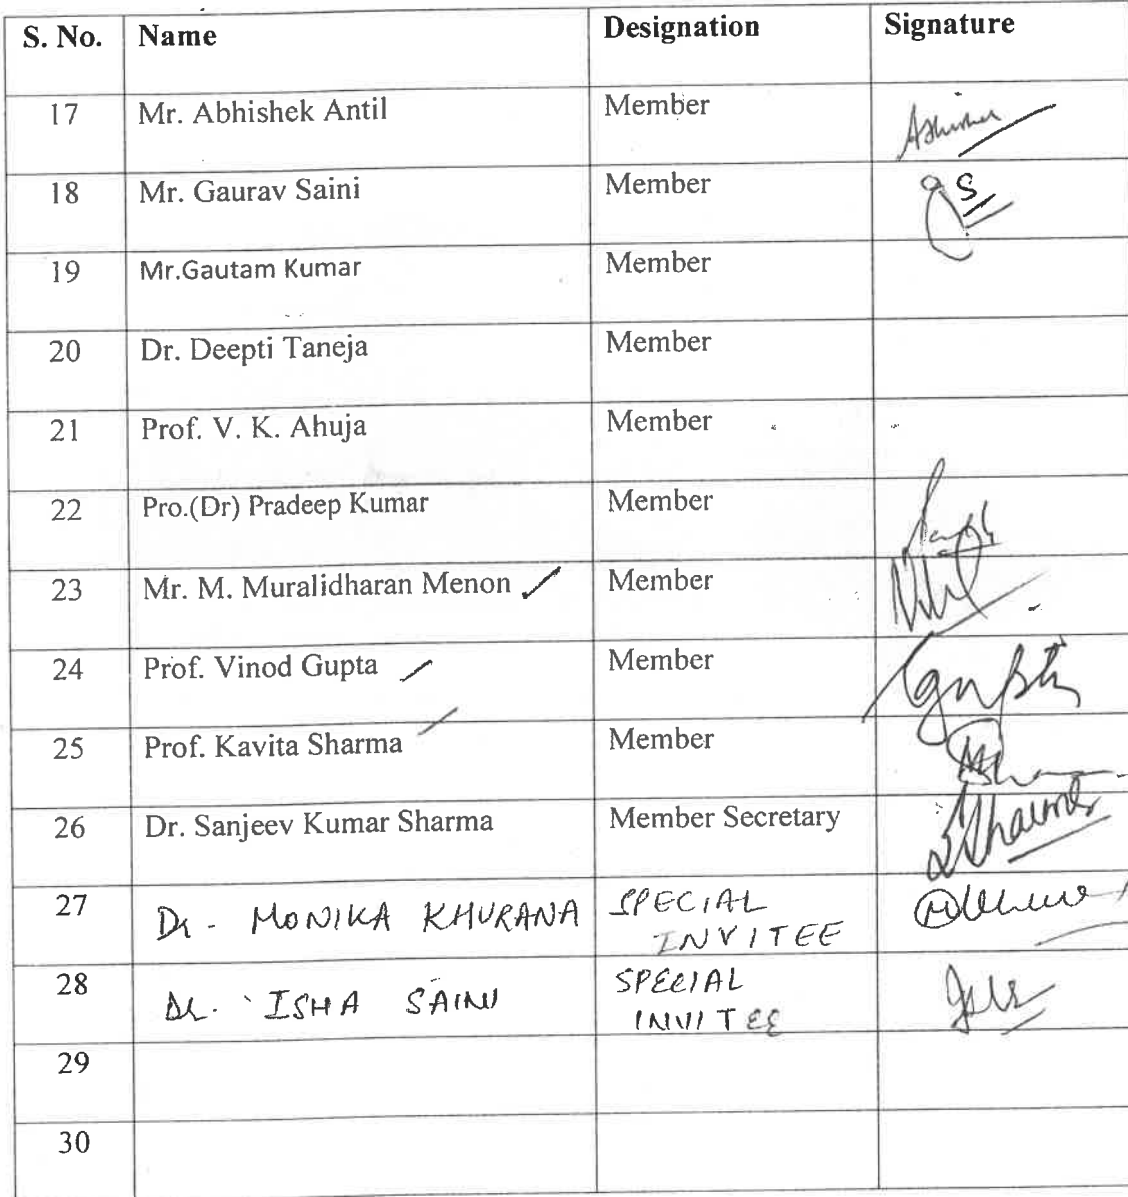 S. No. Name Designation Signature
17 Mr. Abhishek Antil Member
18 Mr. Gaurav Saini Member
19 Mr.Gautam Kumar Member
20 Dr. Deepti Taneja Member
21 Prof. V. K. Ahuja Member
22 Pro.(Dr) Pradeep Kumar Member
23 Mr. M. Muralidharan Menon Member
24 Prof. Vinod Gupta Member Gupta
25 Prof. Kavita Sharma Member
26 Dr. Sanjeev Kumar Sharma Member Secretary SSharma
27 Dr - MONIKA KHURANA SPECIAL
INVITEE
28 Dr. ISHA SAINI SPECIAL
INVITEE
29
30